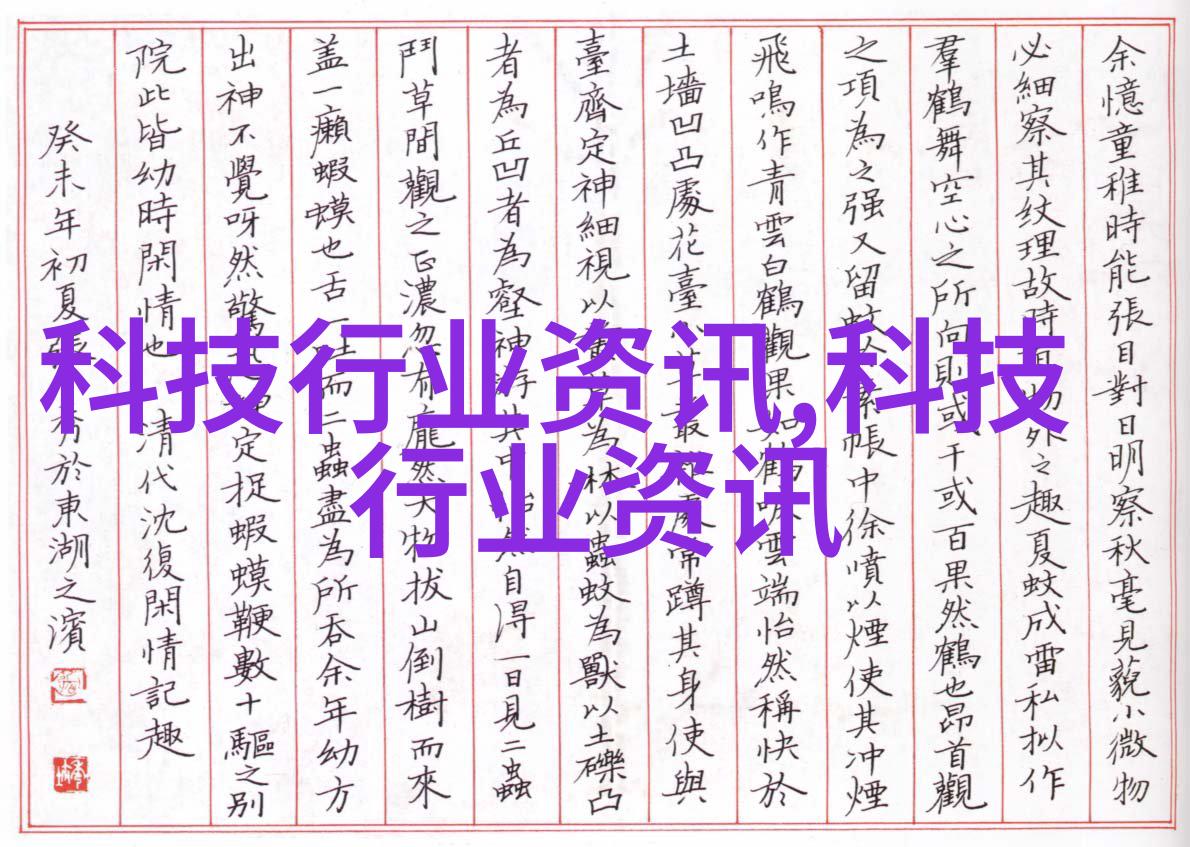 余憶童稚時能張目對日明察秋毫見藐小微物
必細察其纹理故時有物外之趣夏蚊成雷私拟作
羣鶴舞空心之所向則或千或百果然鶴也昂首觀
之項為之强又留蚊於素帳中徐噴以煙使其冲煙
飛鳴作青雲白鶴觀果如鶴唳雲端怡然稱快於
土墻凹凸處花臺小草叢雜處常蹲其身使與
臺齊定神細視以叢草為林以蟲蚊為獸以土礫凸
者為丘凹者為壑神游其中怡然自得一日見二蟲
鬥草間觀之正濃忽有龐然大物拔山倒樹而來
盖一癩蝦蟆也舌一吐而二蟲盡為所吞余年幼方
出神不覺呀然驚恐神定捉蝦蟆鞭數十驅之别
院此皆幼時閑情也 清代沈復閑情記趣
癸未年初夏張 於東湖之濱
科技行业资讯,科技
行业资讯